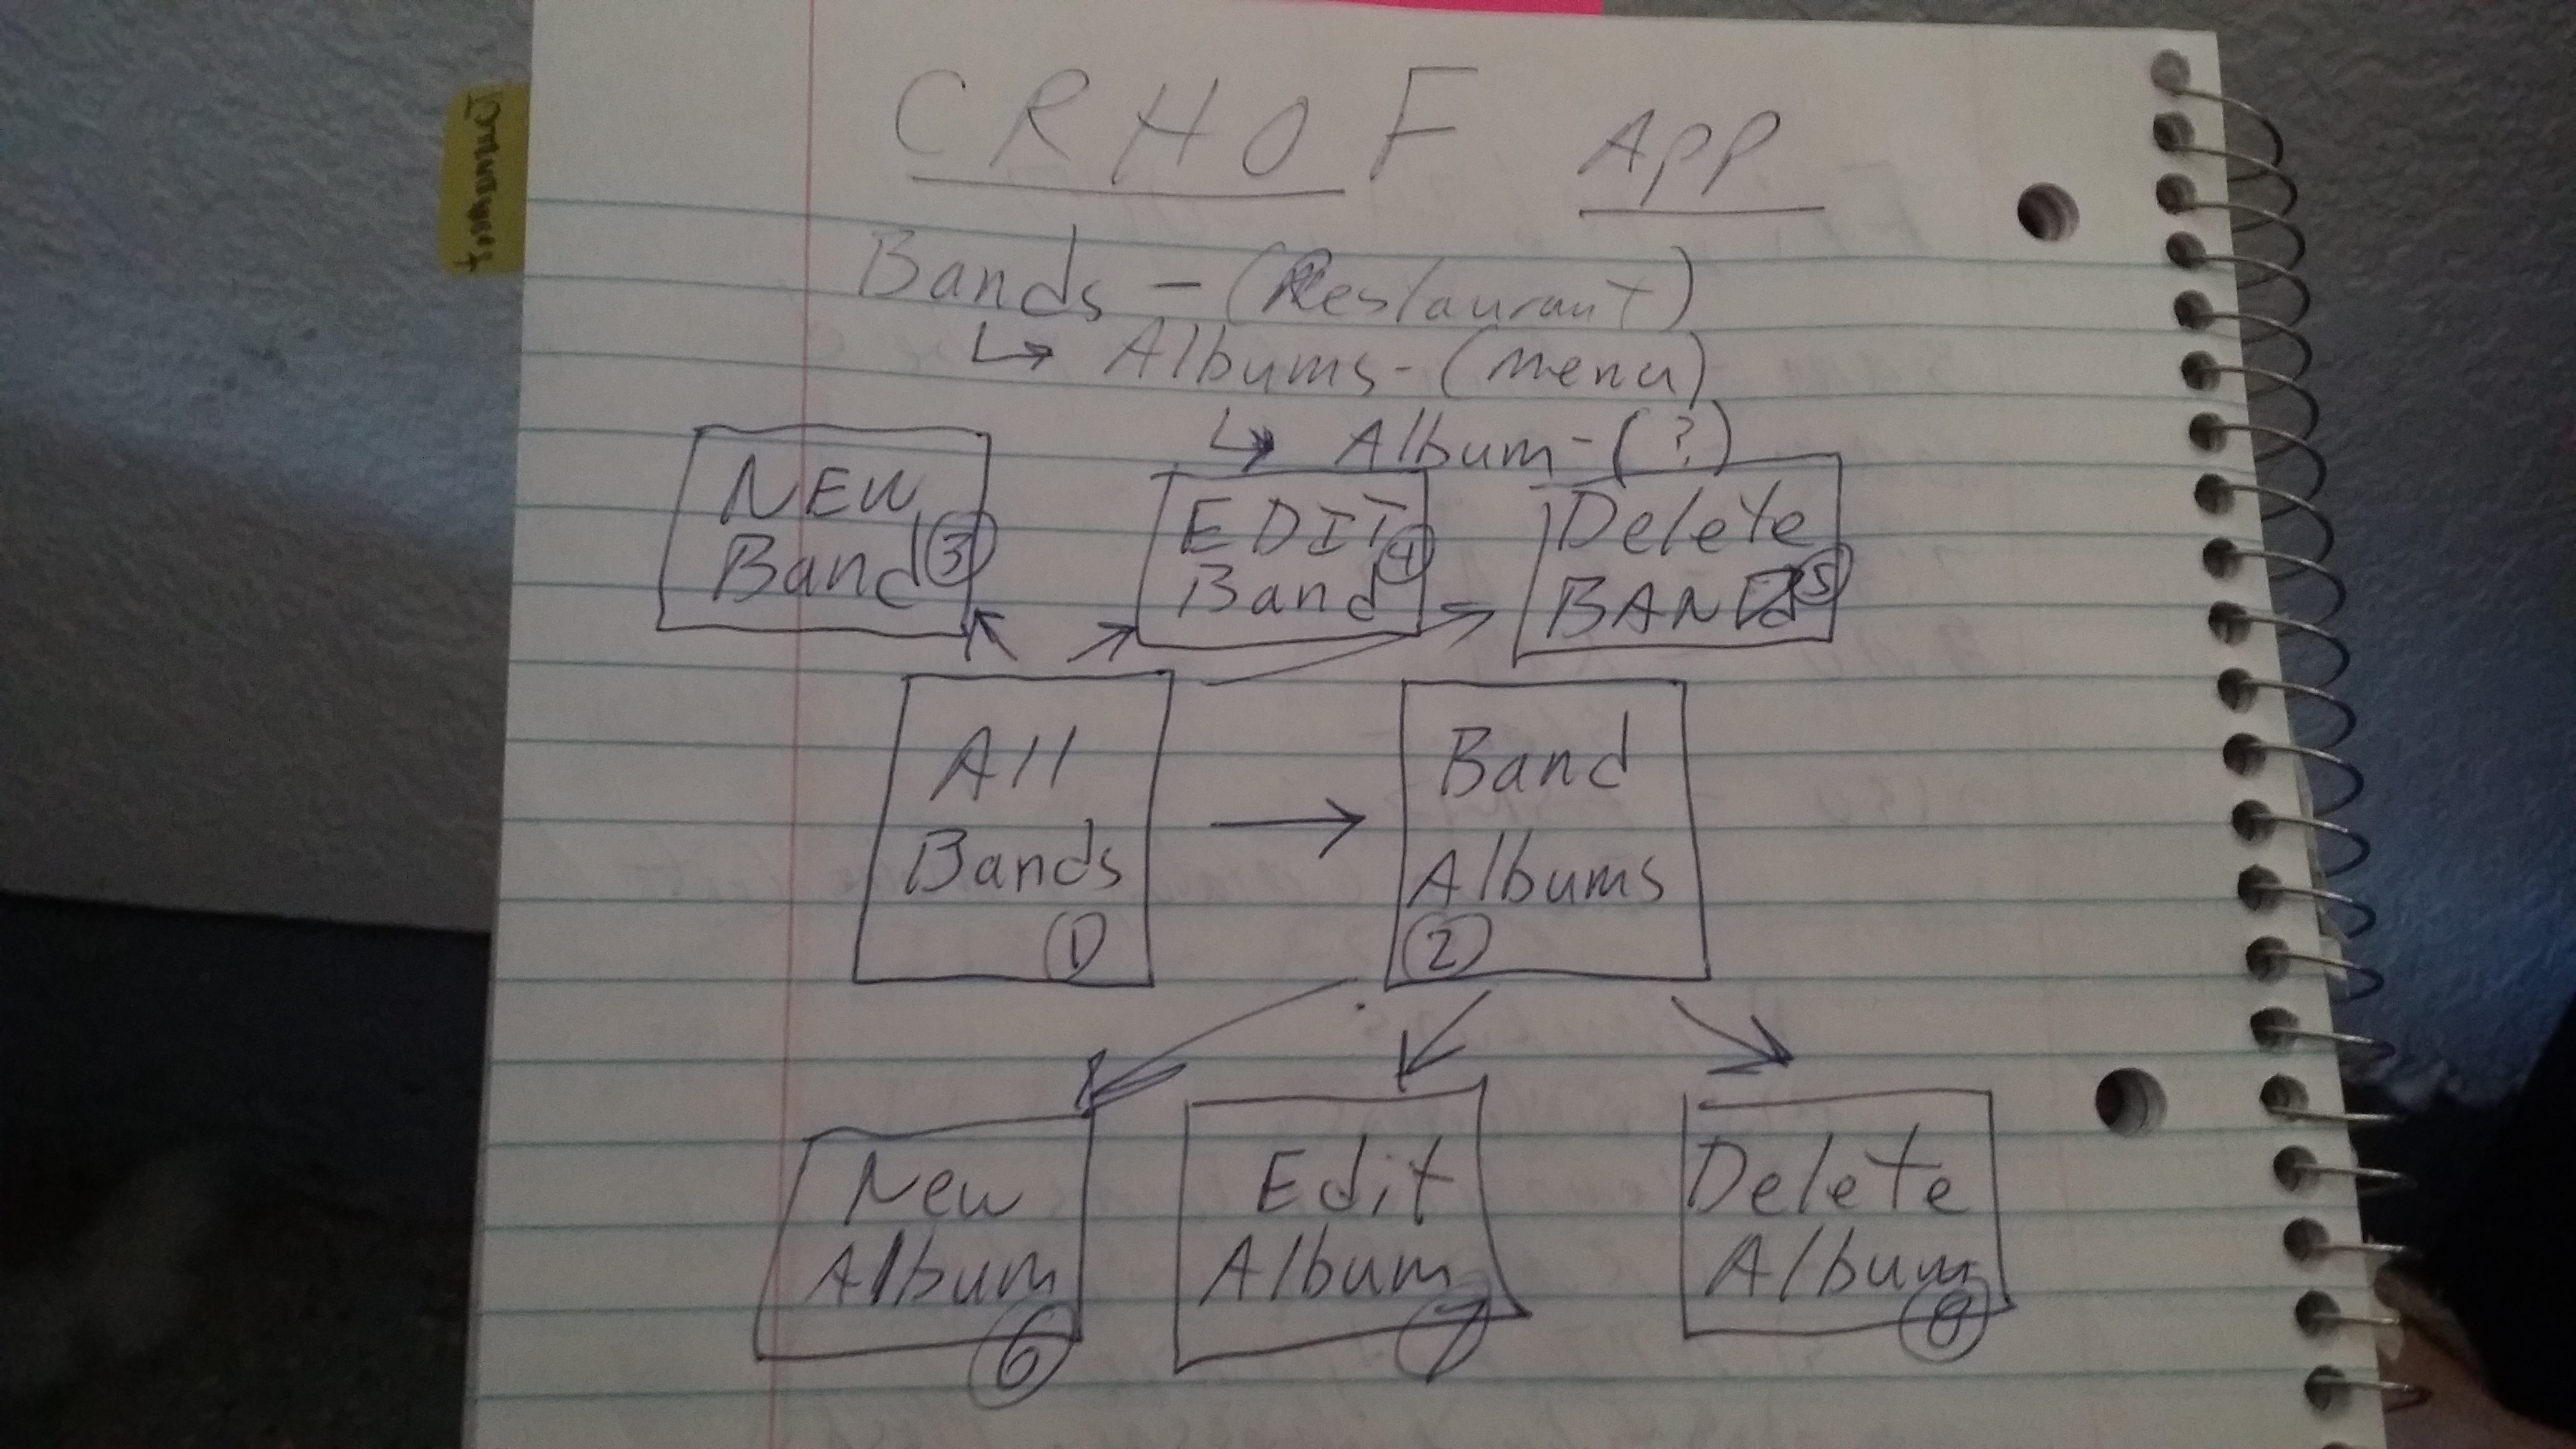 CRHOF APP
Bands - (Restaurant)
↳ Albums - (menu)
↳ Album - (?)
NEW
Band ③
EDIT
Band ④
Delete
BAND ⑤
All
Bands
①
Band
Albums
②
New
Album
⑥
Edit
Album
⑦
Delete
Album
⑧